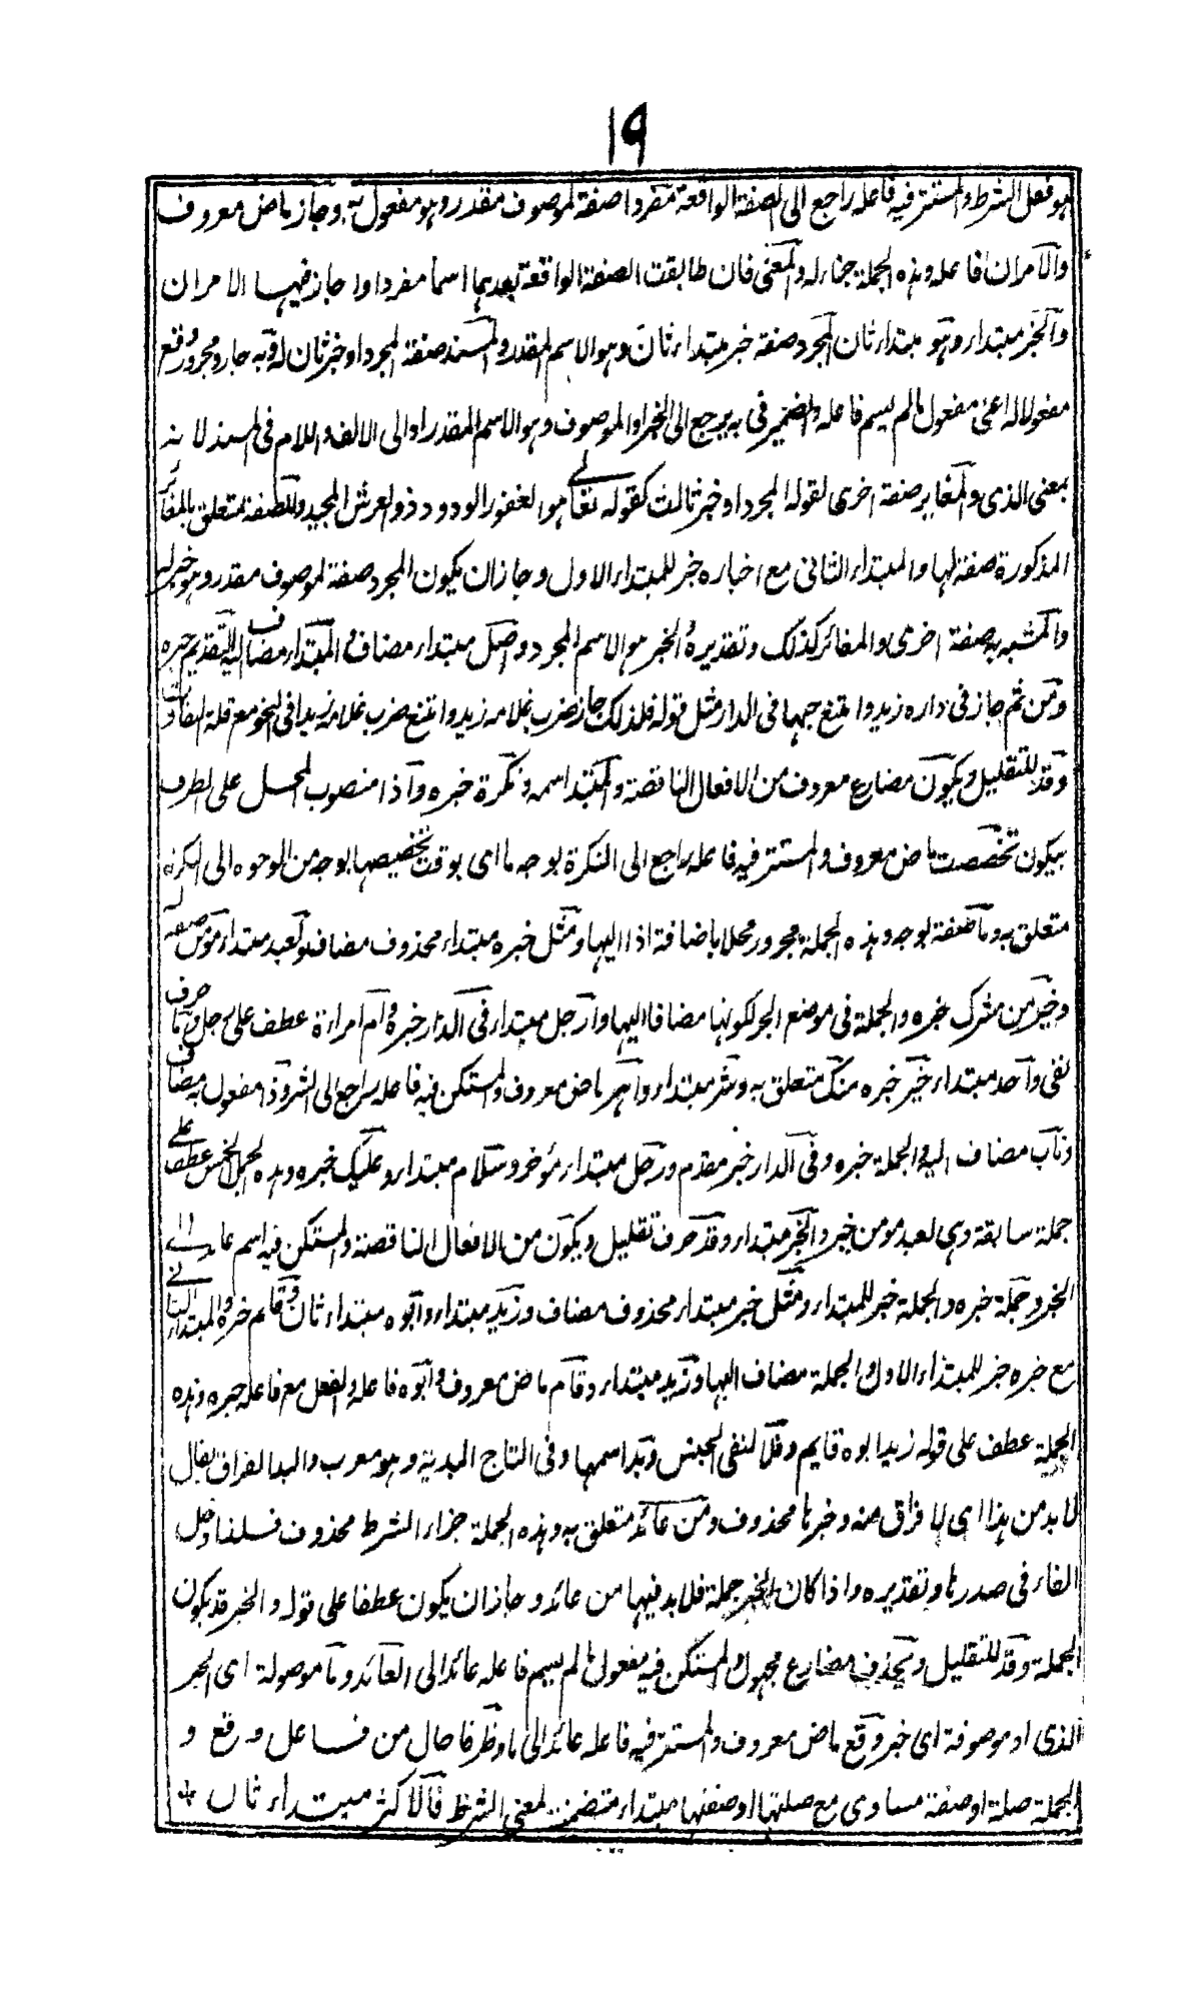 ١٩
هو فعل الشرط والمستتر فيه فاعله راجع الى الصفة الواقعة مفردا صفة لموصوف مقدر وهو مفعول به وجاز ماض معروف
والامران فاعله وهذه الجملة جزاء له والمعنى فان طابقت الصفة الواقعة بعدهما اسما مفردا جاز فيها الامران
والخبر مبتداء وهو مبتداء ثان المجرد صفة خبر مبتداء ثان وهو الاسم المقدر والمسند صفة المجرد او خبر ثان له وبه جار ومجرور وقع
مفعولا له اعنى مفعول ما لم يسم فاعله والضمير فى به يرجع الى الخبر او الموصوف وهو الاسم المقدر او الى الالف واللام فى المسند لانه
بمعنى الذى والمغاير صفة اخرى لقوله المجرد او خبر ثالث كقوله تعالى هو الغفور الودود ذو العرش المجيد وللصفة متعلق بالمغائر
المذكورة صفة لها والمبتداء الثانى مع اخباره خبر للمبتداء الاول وجاز ان يكون المجرد صفة لموصوف مقدر وهو خبر له
والمسند به صفة اخرى والمغائر كذلك وتقديره الخبر هو الاسم المجرد واصل مبتداء مضاف والمبتداء مضاف اليه التقديم خبره
ومن ثم جاز فى داره زيد وامتنع صاحبها فى الدار مثل قوله فلذلك جاز ضرب غلامه زيد وامتنع ضرب غلامه زيدا فى النحو مع قلة التفاوت
وقد للتقليل ويكون مضارع معروف من الافعال الناقصة والمبتدا اسمه ونكرة خبره واذا منصوب المحل على الظرف
بيكون تخصصت ماض معروف والمستتر فيه فاعله راجع الى النكرة بوجه ما اى بوقت تخصيصها بوجه من الوجوه الى النكرة
متعلق به وما صفة لوجه وهذه الجملة مجرور محلا باضافة اذا اليها ومثل خبره مبتداء محذوف مضاف ولعبد مبتداء مؤمن صفته
وخير من مشرك خبره والجملة فى موضع الجر لكونها مضافا اليها وارجل مبتداء فى الدار خبره وام امراءة عطف على رجل وما حرف
نفى واحد مبتداء خير خبره منك متعلق به وشر مبتداء واهر ماض معروف والمستكن فيه فاعله راجع الى الشر وذا مفعول به مضاف
وناب مضاف اليه والجملة خبره وفى الدار خبر مقدم ورجل مبتداء مؤخر وسلام مبتداء وعليك خبره وهذه الجمل الخمس عطف على
جملة سابقة وهى لعبد مومن خير والخبر مبتداء وقد حرف تقليل ويكون من الافعال الناقصة والمستكن فيه اسم عائد الى
الخبر وجملة خبره والجملة خبر للمبتداء ومثل خبر مبتداء محذوف مضاف وزيد مبتداء وابوه مبتداء ثان وقايم خبره والمبتداء الثانى
مع خبره خبر للمبتداء الاول والجملة مضاف اليها وزيد مبتداء وقام ماض معروف وابوه فاعله والفعل مع فاعله خبره وهذه
الجملة عطف على قوله زيد ابوه قايم وفلا لنفى الجنس وبد اسمها وفى التاج البد وهو معرب والبد الفراق يقال
لا بد من هذا اى لا فراق منه وخبرها محذوف ومن عائد متعلق به وهذه الجملة جزاء الشرط محذوف فلذا دخل
الفاء فى صدرها وتقديره واذا كان الخبر جملة فلا بد فيها من عائد وجاز ان يكون عطفا على قوله والخبر قد يكون
الجملة وقد للتقليل ويحذف مضارع مجهول والمستكن فيه مفعول ما لم يسم فاعله عائد الى العائد وما موصولة اى الخبر
الذى او موصوفة اى خبر وقع ماض معروف والمستتر فيه فاعله عائد الى ما وظرفا حال من فاعل وقع و
الجملة صلة او صفة مساوى مع صلتها او صفتها مبتداء متضمن لمعنى الشرط فالاكثر مبتداء ثان